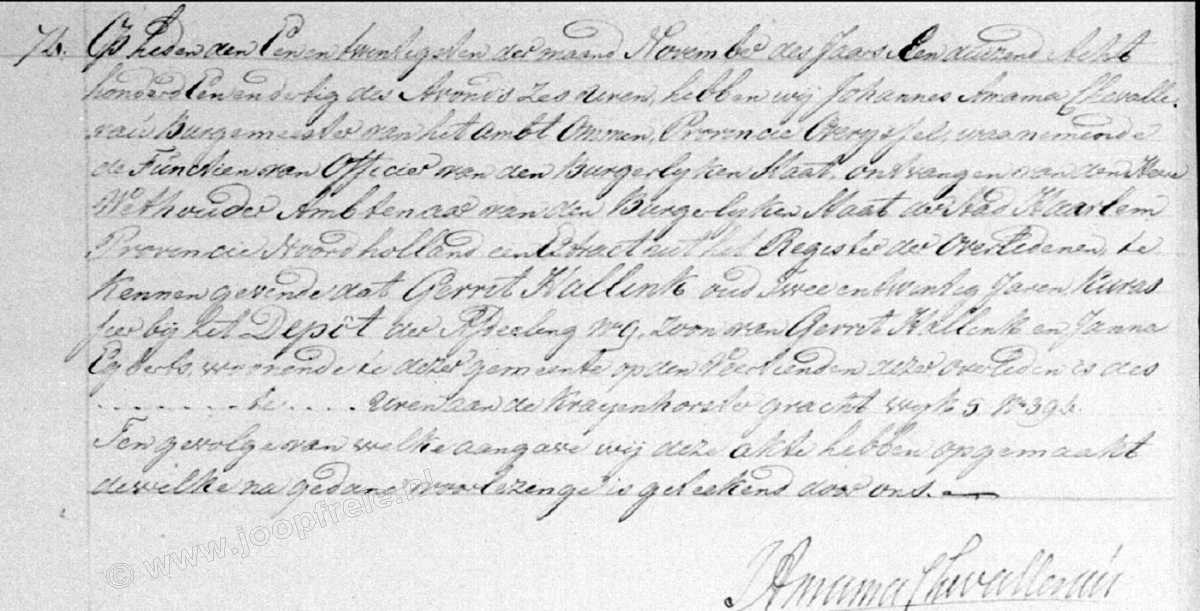 72. Op heden den Eenentwintigsten der maand November des Jaars Een duizend Acht
honderd Een en dertig des Avonds Zes uren, hebben wij Johannes Amama Chevalle
raú Burgemeester van het Ambt Ommen, Provincie Overyssel, waarnemende
de Functien van Officier van den Burgerlyken Staat, ontvangen van den Heere
Wethouder Ambtenaar van den Burgerlyken Staat der Stad Haarlem
Provincie Noordholland een Extract uit het Register der Overledenen, te
Kennen gevende dat Gerrit Hallink oud Twee en twintig Jaren Kuras
sier bij het Depôt der Afdeeling No 9, Zoon van Gerrit Hallink en Janna
Egberts, woonende te dezer gemeente op den Veertienden dezer overleden is des
. . . . . . . . te . . . . Uren aan de Krayenhorster gracht wyk 5 No 396.
Ten gevolge van welke aangave wij deze akte hebben opgemaakt
dewelke na gedane voorlezenge is geteekend door ons.
JAmama Chevalleraú
© www.joopfrele.nl